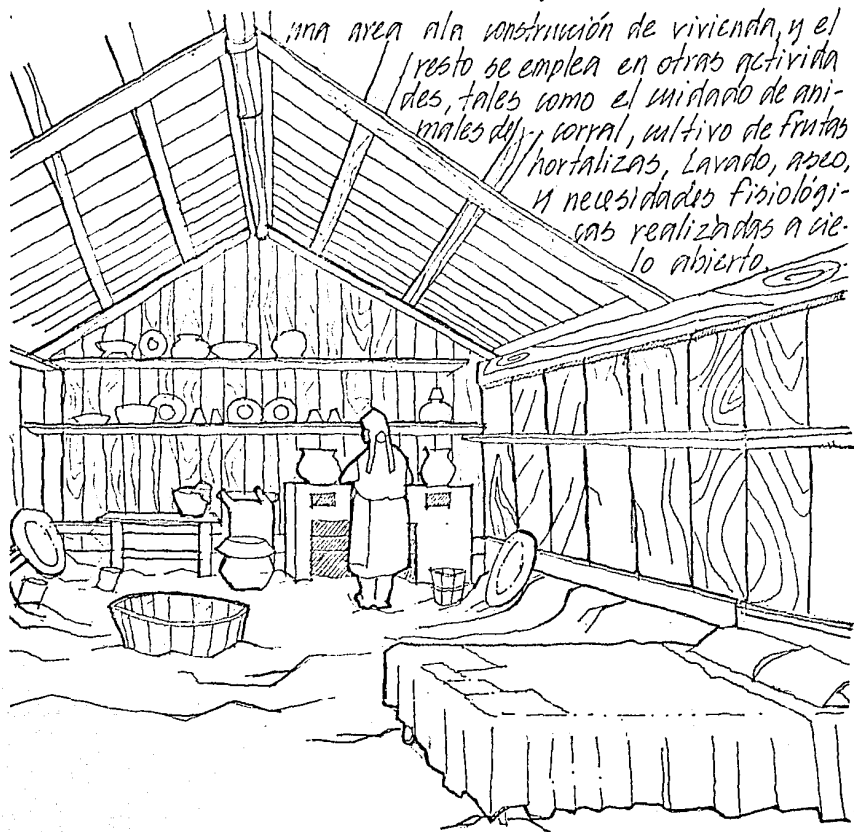 una area ala construcción de vivienda, y el
resto se emplea en otras activida
des, tales como el cuidado de ani-
males de corral, cultivo de frutas
hortalizas, Lavado, aseo,
y necesidades fisiológi-
cas realizadas a cie-
lo abierto.